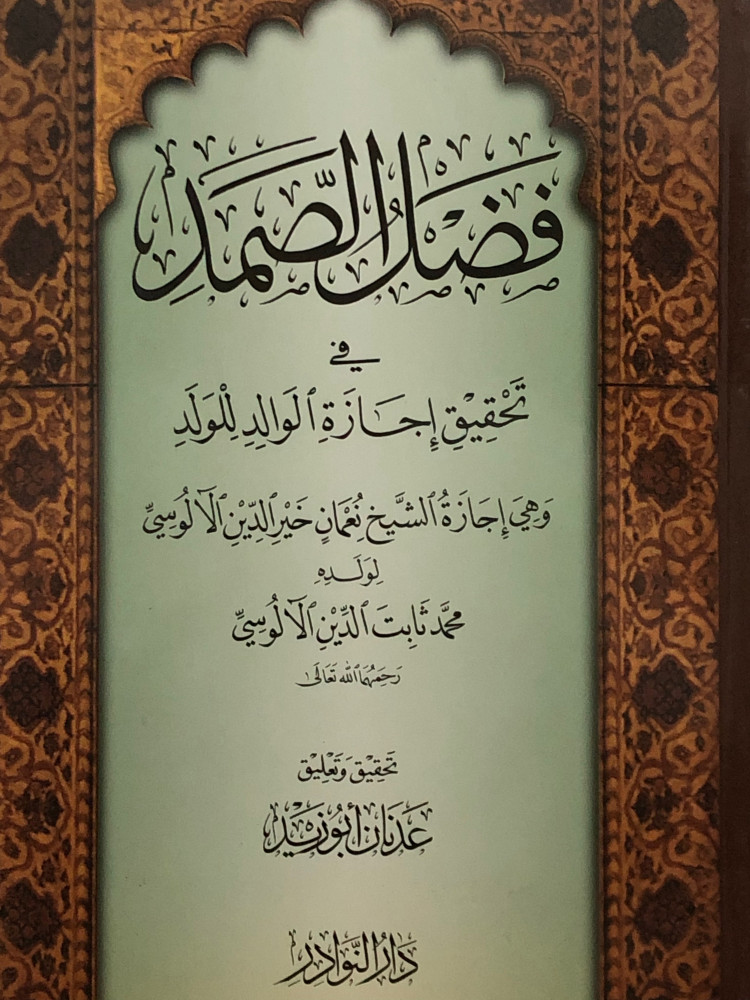 فَضْلُ الصَّمَدِ
في
تَحْقِيْقِ إِجَازَةِ ٱلْوَالِدِ لِلْوَلَدِ
وَهِيَ إِجَازَةُ ٱلشَّيْخِ نُعْمَانٍ خَيْرِ ٱلدِّيْنِ ٱلْآلُوسِيِّ
لِوَلَدِهِ
مُحَمَّد ثَابِتَ ٱلدِّيْنِ ٱلْآلُوسِيِّ
رَحِمَهُمَا ٱللهُ تَعَالَى
تَحْقِيْق وَتَعْلِيْق
عَدْنَان أَبُو زَيْد
دَارُ النَّوَادِرِ